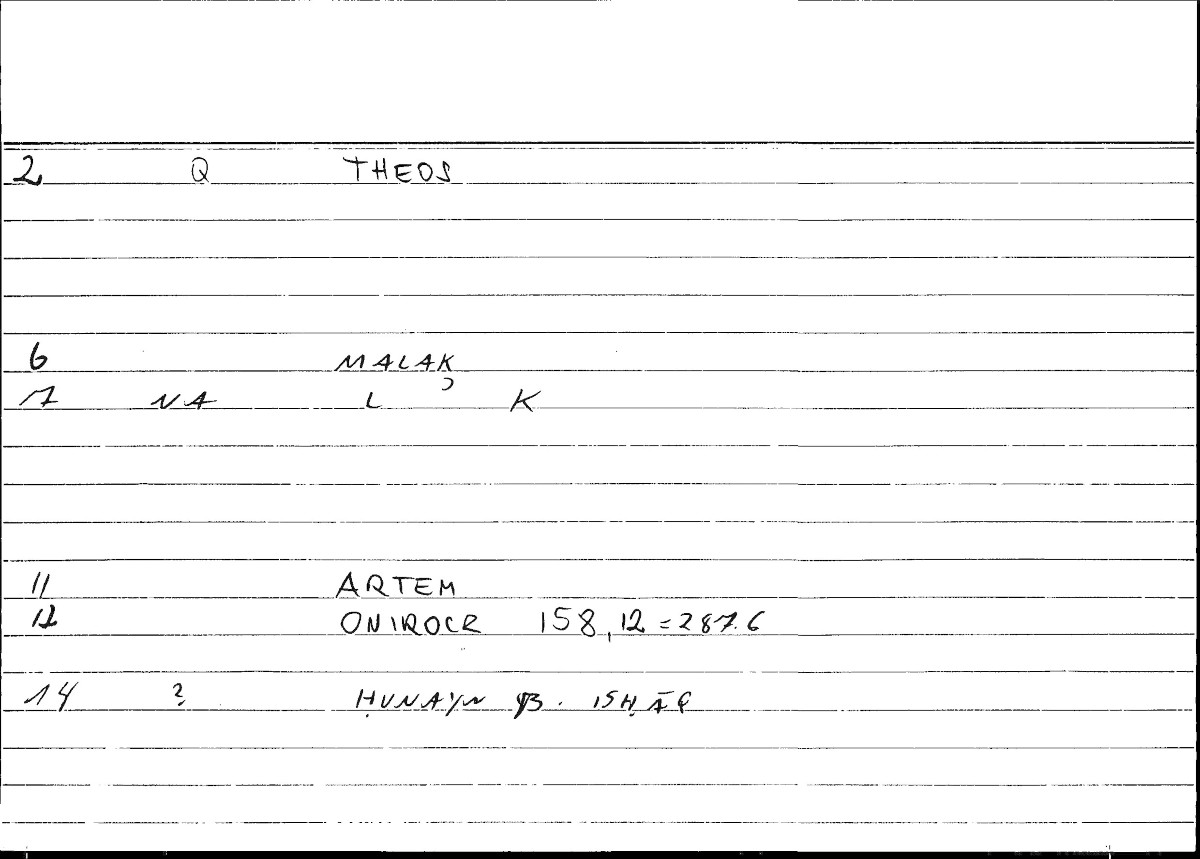 2 Q THEOS
6 MALAK
7 NA L ʾ K
11 ARTEM
12 ONIROCR 158,12 = 287.6
14 ? ḤUNAYN B. ISḤĀQ